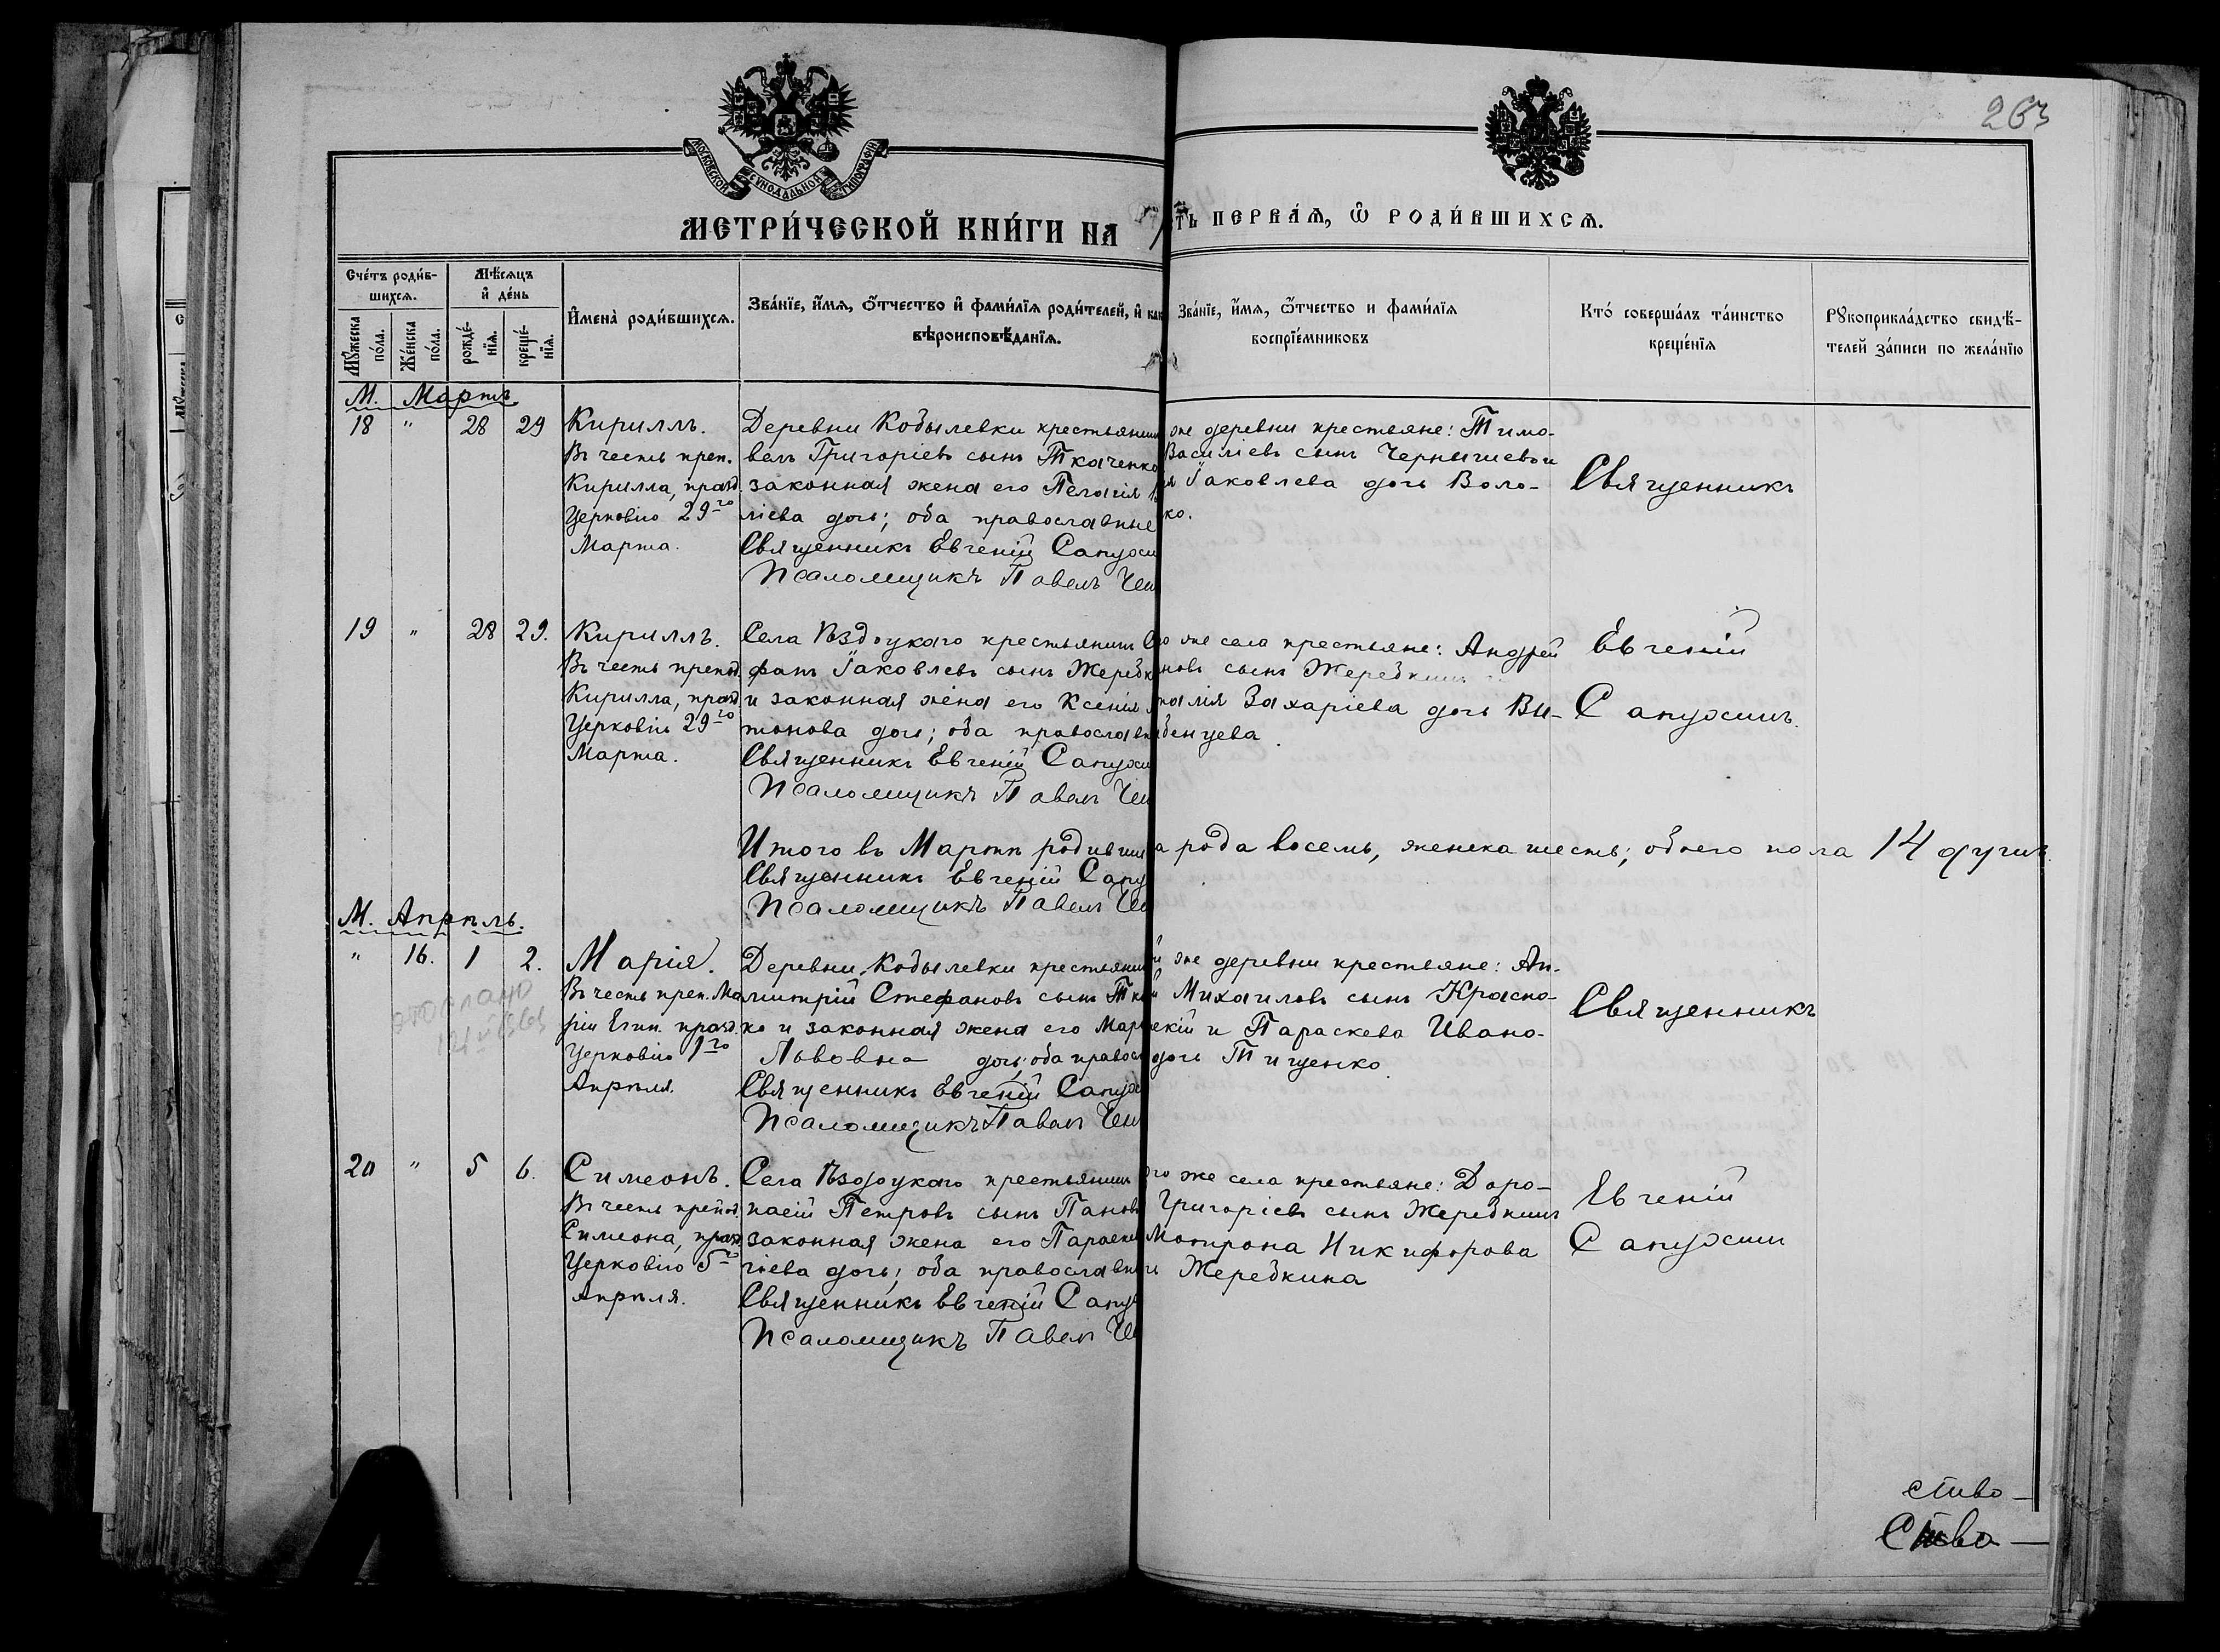 263
МОСКОВСКОЙ СѴНОДАЛЬНОЙ ТИПОГРАФІИ
МЕТРИ́ЧЕСКОЙ КНИ́ГИ НА
СТЬ ПЕРВА́Ѧ, Ѿ РОДИ́ВШИХСѦ.
Сче́тъ роди́в-
шихсѧ.
Мѣ́сѧцъ
и҆ де́нь
Мꙋ́жеска
по́ла.
Же́нска
по́ла.
рожде́-
нїѧ.
креще́-
нїѧ.
И҆мена̀ роди́вшихсѧ.
Зва́нїе, и҆́мѧ, ѻ҆́тчество и҆ фами́лїѧ роди́телей, и҆ как
вѣроисповѣ́данїѧ.
Зва́нїе, и҆́мѧ, ѻ҆́тчество и фами́лїѧ
воспрїе́мниковъ
Кто́ соверша́лъ та́инство
креще́нїѧ
Рꙋкоприкла́дство свидѣ́-
телей за́писи по жела́нїю
М. Мартъ.
18 " 28 29 Кириллъ.
Въ честь преп.
Кирилла, празд.
Церковію 29-го
Марта.
Деревни Кобылевки крестьянин
велъ Григоріевъ сынъ Ткаченко
законная жена его Пелагія
ліева дочь; оба православные
Священникъ Евгеній Сапухи
Псаломщикъ Павелъ
же деревни крестьяне: Тимо-
Василіевъ сынъ Чернышевъ и
Іаковлева дочь Воло-
ко.
Священникъ
19 " 28 29. Кириллъ.
Въ честь препод.
Кирилла, празд.
Церковію 29-го
Марта.
Села крестьянинъ
фанъ Іаковлевъ сынъ Жеребк
и законная жена его Ксенія
тонова дочь; оба православн
Священникъ Евгеній Сапухи
Псаломщикъ Павелъ
го же села крестьяне: Андрей
новъ сынъ Жеребкинъ
талія Захаріева дочь Ви-
бенцева.
Евгеній
Сапухинъ.
Итого въ Мартѣ родивши
а рода восемь, женска шесть; обоего пола 14 душъ.
Священникъ Евгеній Сапу
Псаломщикъ Павелъ
М. Апрѣль.
" 16. 1 2. Марія.
Въ честь преп. Ма
ріи Егип. празд.
Церковію 1-го
Апрѣля.
Деревни Кобылевки крестьянин
митрій Стефановъ сынъ Тк
ко и законная жена его Мар
Львовна дочь; оба правосл
Священникъ Евгеній Сапух
Псаломщикъ Павелъ
же деревни крестьяне: Ан-
Михаиловъ сынъ Красно-
скій и Параскева Ивано-
дочь Тищенко.
Священникъ
20 " 5 6. Симеонъ.
Въ честь препод.
Симеона, празд.
Церковію 5-го
Апрѣля.
Села крестьянин
Петровъ сынъ Пановъ
законная жена его Параске
гіева дочь; оба православн
Священникъ Евгеній Сапу
Псаломщикъ Павелъ
го же села крестьяне: Доро-
Григоріевъ сынъ Жеребкинъ
Матрона Никифорова
Жеребкина
Евгеній
Сапухин
ство-
Ство-